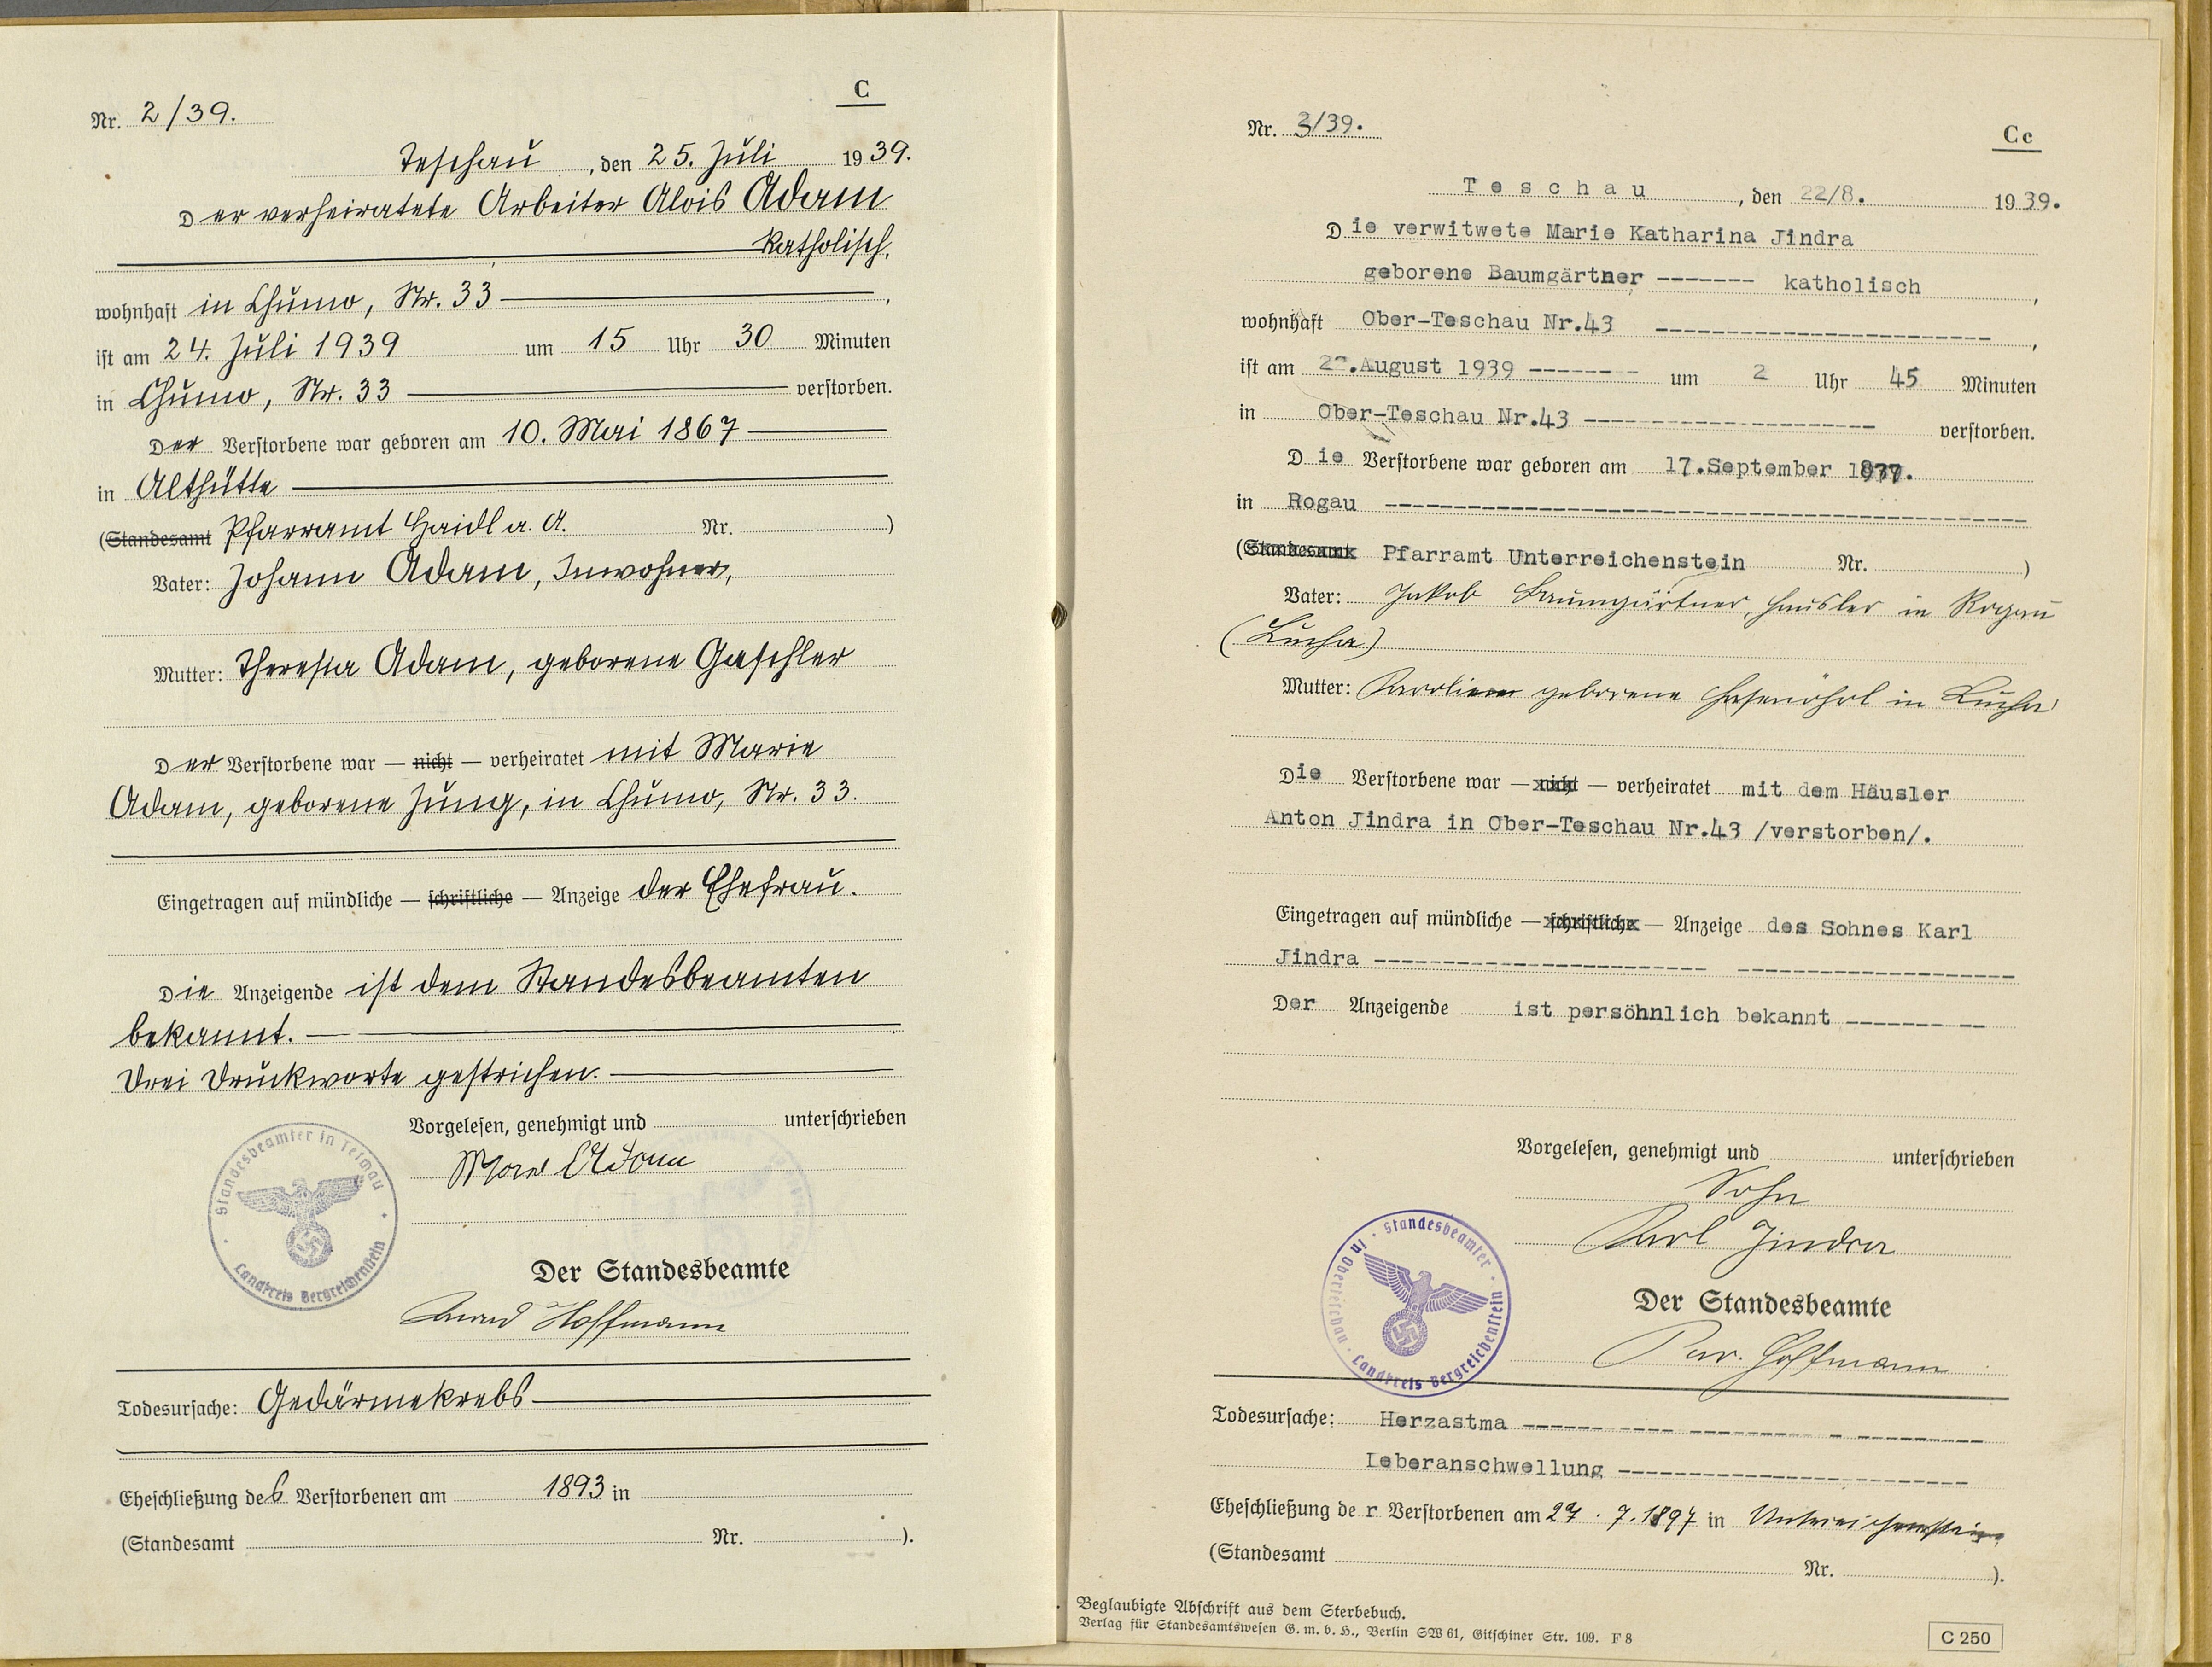 C
Nr. 2/39.
Teschau, den 25. Juli 1939.
Der verheiratete Arbeiter Alois Adam
katholisch,
wohnhaft in Chumo, Nr. 33,
ist am 24. Juli 1939 um 15 Uhr 30 Minuten
in Chumo, Nr. 33 verstorben.
Der Verstorbene war geboren am 10. Mai 1867
in Althütte
(Standesamt Pfarramt Haidl a. A. Nr. )
Vater: Johann Adam, Inwohner,
Mutter: Theresia Adam, geborene Gaschler
Der Verstorbene war — nicht — verheiratet mit Marie
Adam, geborene Jung, in Chumo, Nr. 33.
Eingetragen auf mündliche — schriftliche — Anzeige der Ehefrau.
Die Anzeigende ist dem Standesbeamten
bekannt.
Drei Druckworte gestrichen.
Vorgelesen, genehmigt und unterschrieben
Adam
Standesbeamter in Teschau
Landkreis Bergreichenstein
Der Standesbeamte
Hoffmann
Todesursache: Gedärmekrebs
Eheschließung des Verstorbenen am 1893 in
(Standesamt Nr. ).
Nr. 3/39.
Cc
Teschau, den 22/8. 1939.
Die verwitwete Marie Katharina Jindra
geborene Baumgärtner ------- katholisch,
wohnhaft Ober-Teschau Nr.43 --------------------,
ist am 22.August 1939 -------- um 2 Uhr 45 Minuten
in Ober-Teschau Nr.43 --------------------- verstorben.
Die Verstorbene war geboren am 17.September
in Rogau --------------------------------------
(Standesamt Pfarramt Unterreichenstein Nr. )
Vater: Jakob Baumgärtner, Häusler in Rogau
(Lucha)
Mutter: geborene Hasenöhrl in Lucha
Die Verstorbene war — nicht — verheiratet mit dem Häusler
Anton Jindra in Ober-Teschau Nr.43 /verstorben/.
Eingetragen auf mündliche — schriftliche — Anzeige des Sohnes Karl
Jindra --------------------------------------------
Der Anzeigende ist persöhnlich bekannt ----------
Vorgelesen, genehmigt und unterschrieben
Sohn
Karl Jindra
Standesbeamter in Oberteschau
Landkreis Bergreichenstein
Der Standesbeamte
Hoffmann
Todesursache: Herzastma --------------------------
Leberanschwellung ------------------------
Eheschließung der Verstorbenen am 27. 7. 1897 in Unterreichenstein
(Standesamt Nr. ).
Beglaubigte Abschrift aus dem Sterbebuch.
Verlag für Standesamtswesen G. m. b. H., Berlin SW 61, Gitschiner Str. 109. F 8
C 250